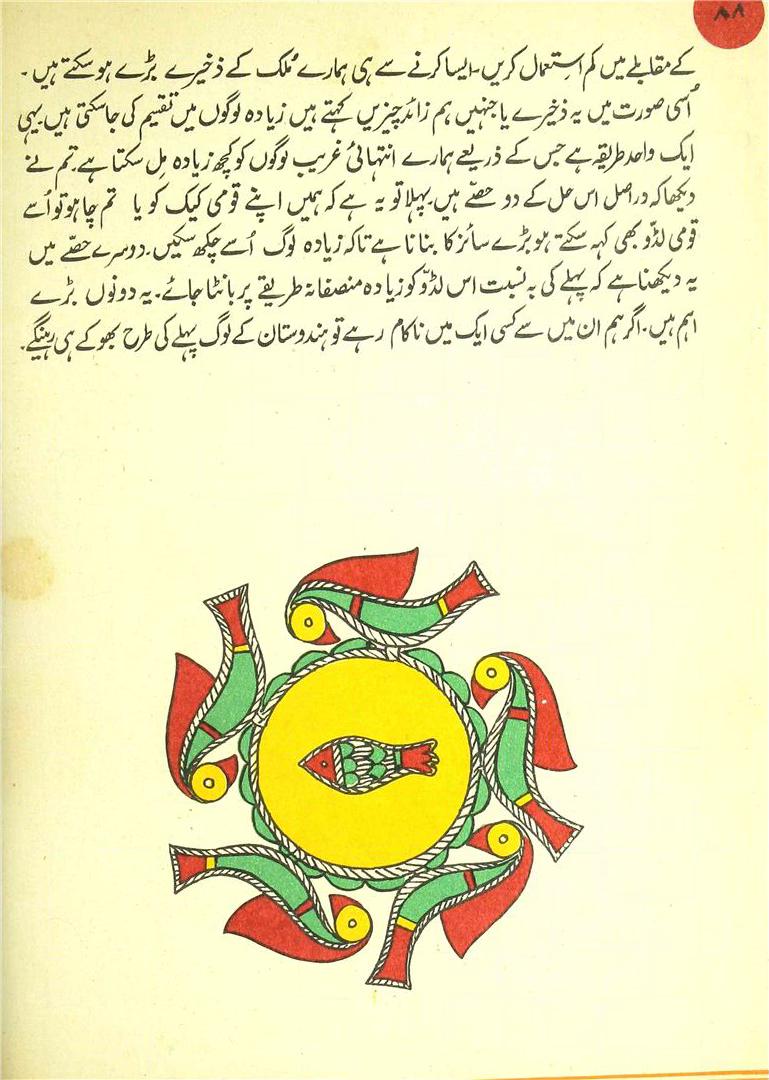 ۸۸
کے مقابلے میں کم استعمال کریں۔ ایسا کرنے سے ہی ہمارے مُلک کے ذخیرے بڑے ہو سکتے ہیں۔
اُسی صورت میں یہ ذخیرے یا جنہیں ہم زائد چیزیں کہتے ہیں زیادہ لوگوں میں تقسیم کی جا سکتی ہیں۔ یہی
ایک واحد طریقہ ہے جس کے ذریعے ہمارے انتہائی غریب لوگوں کو کچھ زیادہ مِل سکتا ہے۔ تم نے
دیکھا کہ دراصل اس حل کے دو حصّے ہیں۔ پہلا تو یہ ہے کہ ہمیں اپنے قومی کیک کو یا تم چاہو تو اُسے
قومی لڈّو بھی کہہ سکتے ہو بڑے سائز کا بنانا ہے تاکہ زیادہ لوگ اُسے چکھ سکیں۔ دوسرے حصّے میں
یہ دیکھنا ہے کہ پہلے کی بہ نسبت اس لڈّو کو زیادہ منصفانہ طریقے پر بانٹا جائے۔ یہ دونوں بڑے
اہم ہیں۔ اگر ہم ان میں سے کسی ایک میں ناکام رہے تو ہندوستان کے لوگ پہلے کی طرح بھوکے ہی رہینگے۔